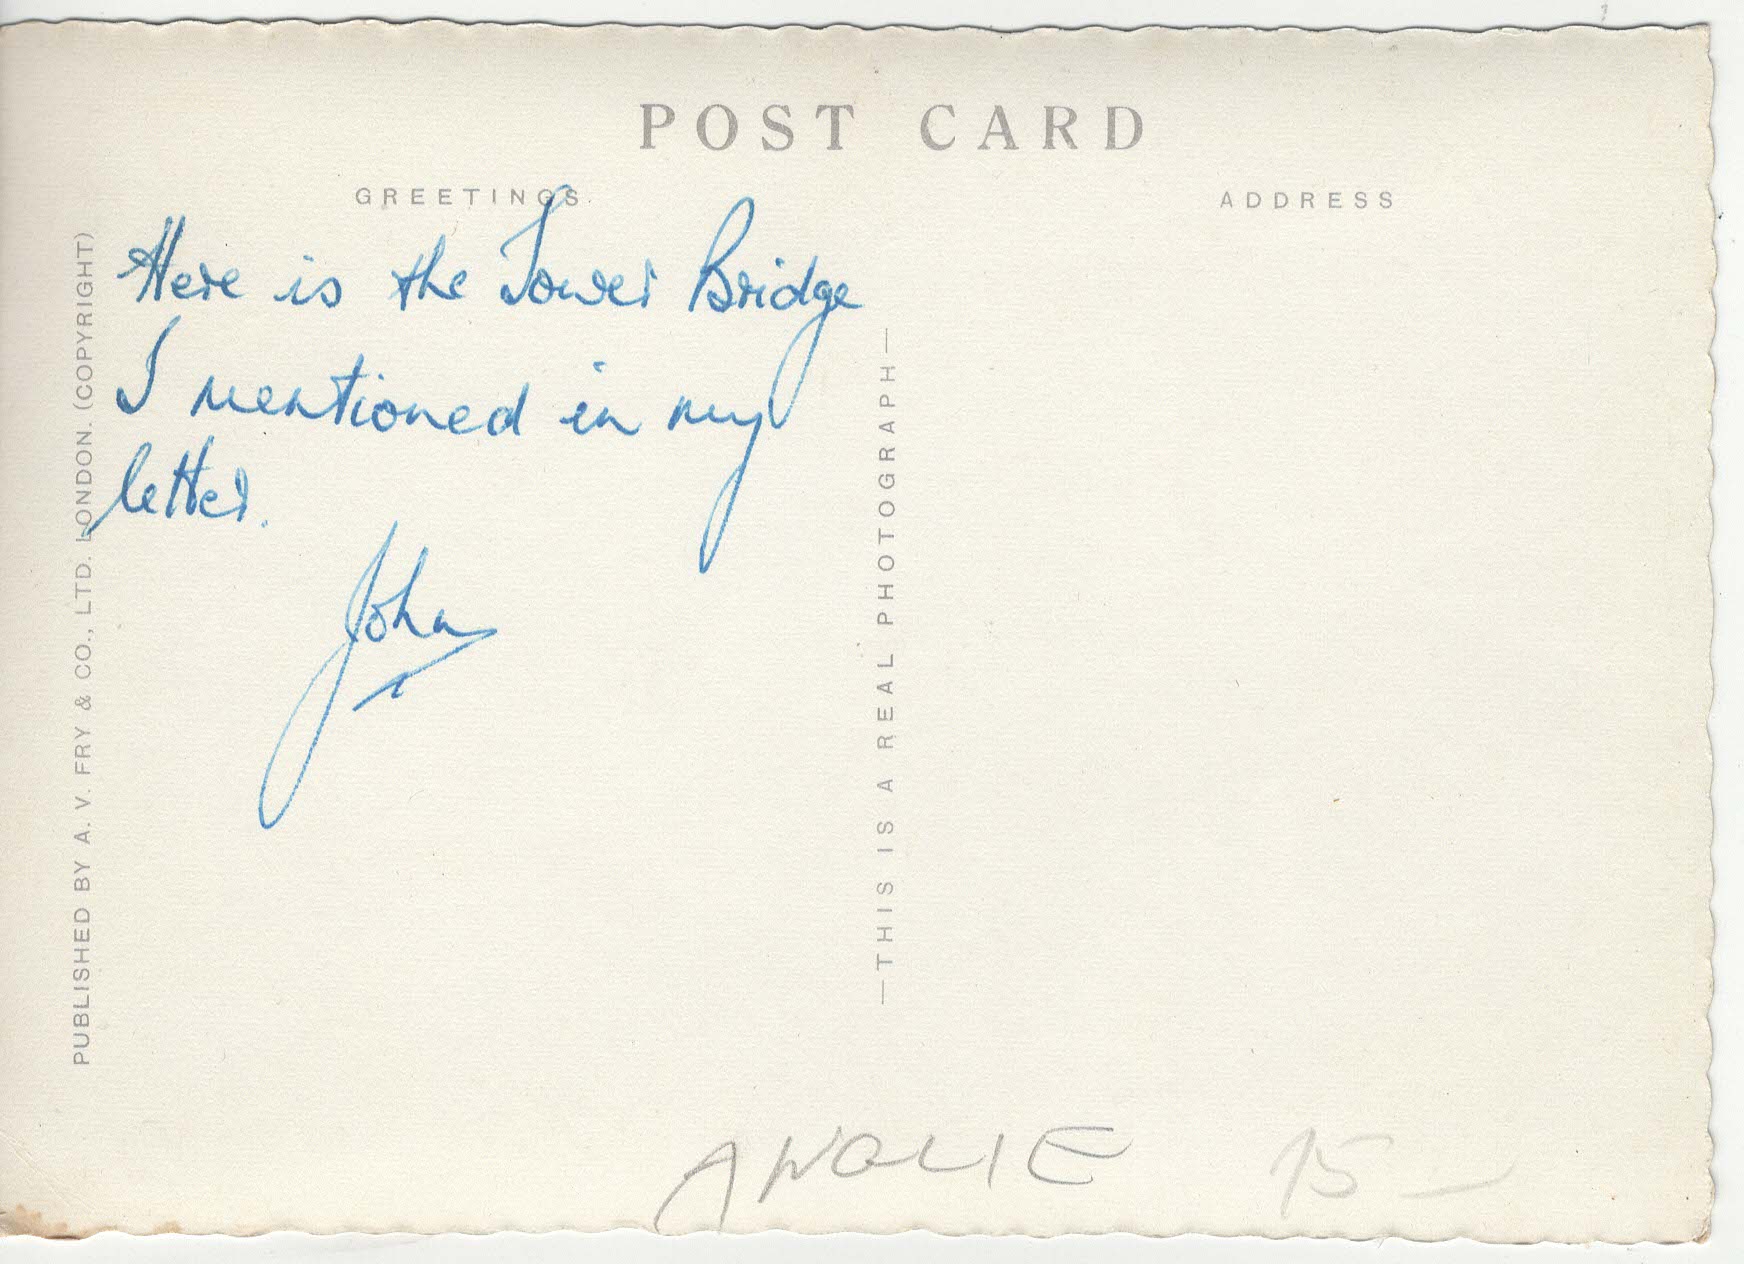 POST CARD
GREETINGS.
ADDRESS
Here is the Tower Bridge
I mentioned in my
letter.
John
PUBLISHED BY A. V. FRY & CO., LTD. LONDON. (COPYRIGHT)
—THIS IS A REAL PHOTOGRAPH—
ANGLIE 15 —